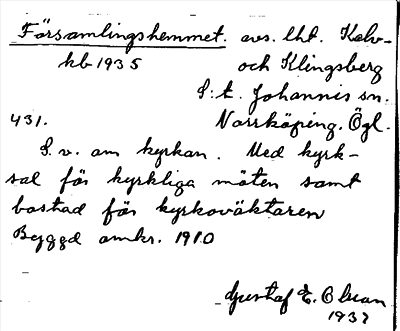 Församlingshemmet. avs. lht. Kalv-
kb 1935 och Klingsberg
S:t. Johannis sn.
431. Norrköping. Ögl.
S. v. om kyrkan. Med kyrk-
sal för kyrkliga möten samt
bostad för kyrkoväktaren
Byggd omkr. 1910
Gustaf E. Olsson
1937